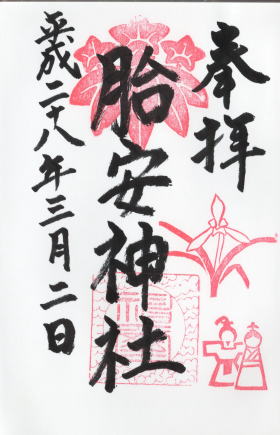 奉拝
胎安神社
平成二十八年三月二日